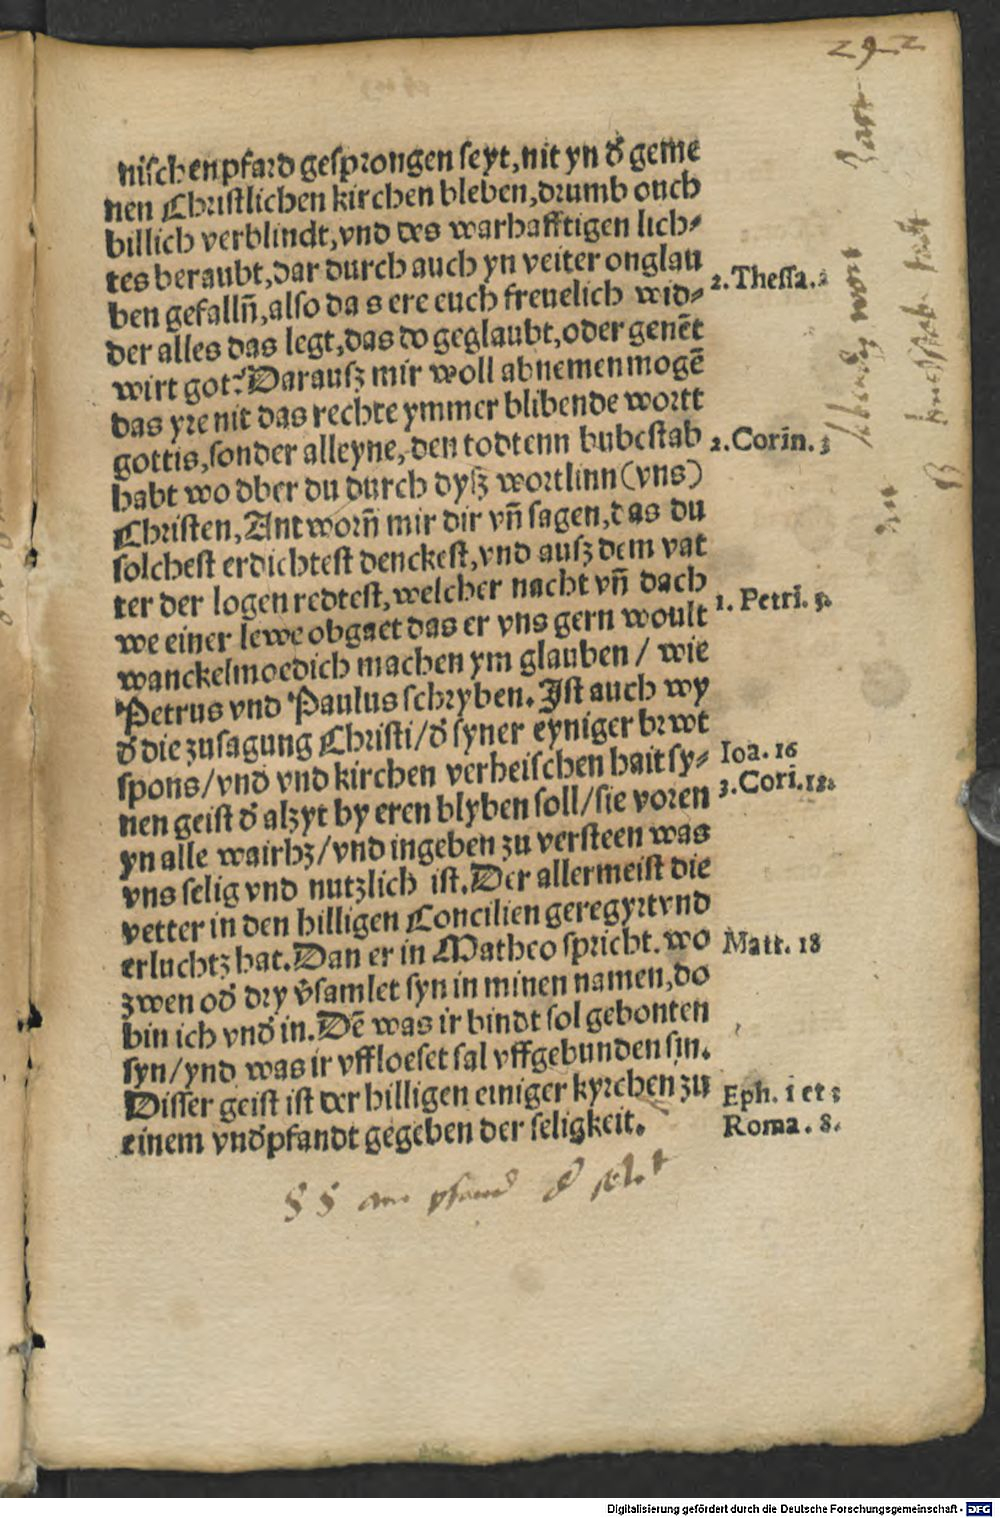 292
nischen pfard gesprongen seyt, nit yn d̕ geme
nen Christlichen kirchen bleben, drumb ouch
billich verblindt, vnd des warhafftigen lich⸗
tes beraubt, dar durch auch yn veiter onglau
ben gefallñ, also da s ere euch freuelich wid⸗
2. Thessa. 2
der alles das legt, das do geglaubt, oder genẽt
wirt got? Darausz mir woll abnemen mogẽ
das yre nit das rechte ymmer blibende wortt
gottis, sonder alleyne, den todtenn bubestab
2. Corin. 3
habt wo dber du durch dysz wortlinn (vns)
Christen, Antworñ mir dir vñ sagen, das du
solchest erdichtest denckest, vnd ausz dem vat
ter der logen redtest, welcher nacht vñ dach
1. Petri. 5.
we einer lewe obgaet das er vns gern woult
wanckelmoedich machen ym glauben / wie
Petrus vnd Paulus schryben. Jst auch wy
d̕ die zusagung Christi / d̕ syner eyniger brwt
spons / vnd vnd kirchen verheischen hait sy⸗
Ioa. 16
nen geist d̕ alzyt by eren blyben soll / sie voren
3. Cori. 12.
yn alle wairhz / vnd ingeben zu versteen was
vns selig vnd nutzlich ist. Der allermeist die
vetter in den hilligen Concilien geregyrt vnd
erluchtz hat. Dan er in Matheo spricht. wo
Matt. 18
zwen od̕ dry v̕samlet syn in minen namen, do
bin ich vnd̕ in. Dẽ was ir bindt sol gebonten
syn / ynd was ir vffloeset sal vffgebunden sin.
Disser geist ist der hilligen einiger kyrchen zu
Eph. 1 et 3
einem vnd̕pfandt gegeben der seligkeit.
Roma. 8.